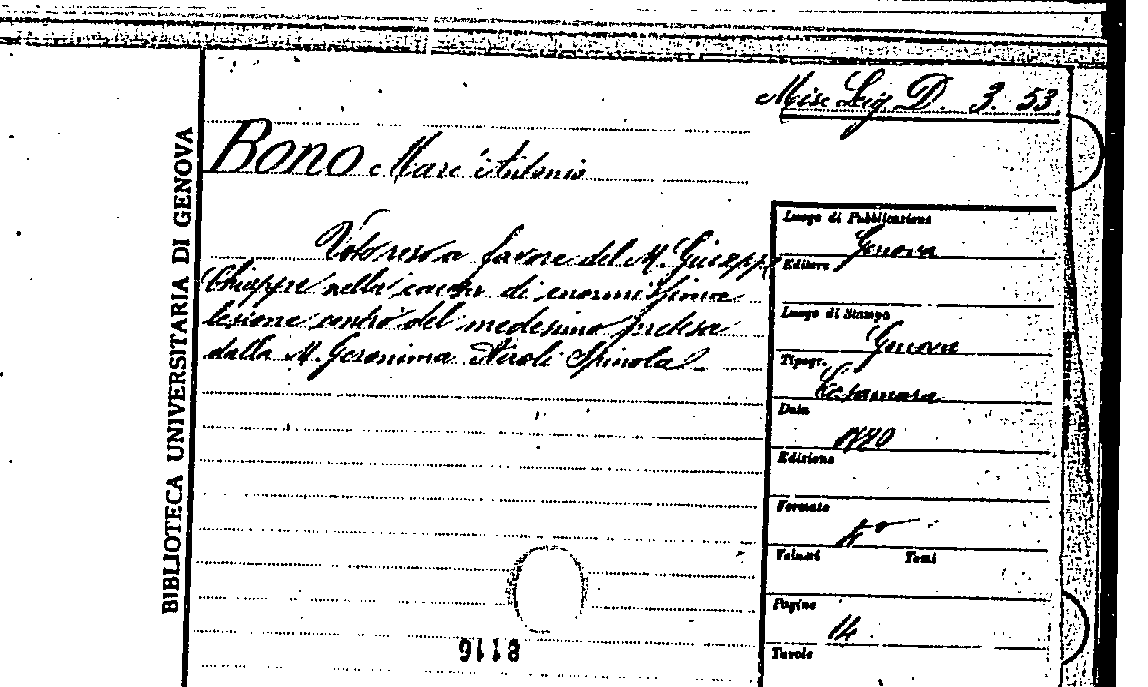 Misc Lig D. 3. 53.
BIBLIOTECA UNIVERSITARIA DI GENOVA
BONO Marc'Antonio
Voto reso a favore del M. Giuseppe
Chiappe nella causa di enormissima
lesione contro del medesimo pretesa
dalla M. Geronima Airoli Spinola
Luogo di Pubblicazione
Genova
Editore
Luogo di Stampa
Genova
Tipogr.
Data
Edizione
Formato
4°
Volumi Tomi
Pagine
14
Tavole
8116